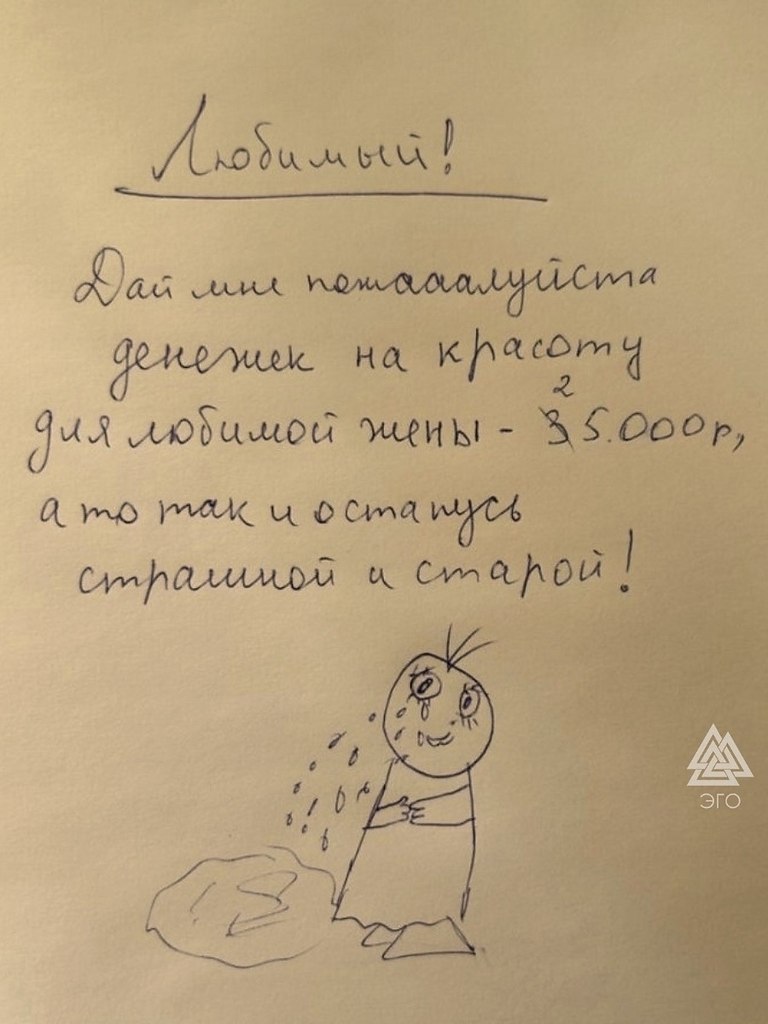 Любимый!
Дай мне пожаааалуйста
денежек на красоту
2
для любимой жены - 35.000р,
а то так и останусь
страшной и старой!
ЭГО